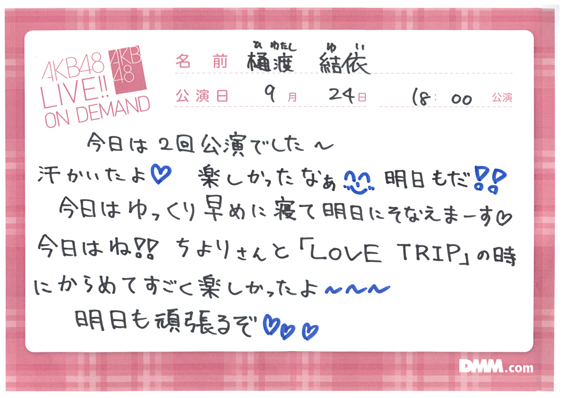 AKB48
LIVE!!
ON DEMAND
AKB
48
ひ わたし ゆ い
名前 樋渡 結依
公演日 9月 24日 18:00 公演
今日は2回公演でした～
汗かいたよ♡ 楽しかったなぁ 明日もだ!!
今日はゆっくり早めに寝て明日にそなえまーす♡
今日はね!! ちよりさんと「LOVE TRIP」の時
にからめてすごく楽しかったよ～～～
明日も頑張るぞ♡♡♡
DMM.com